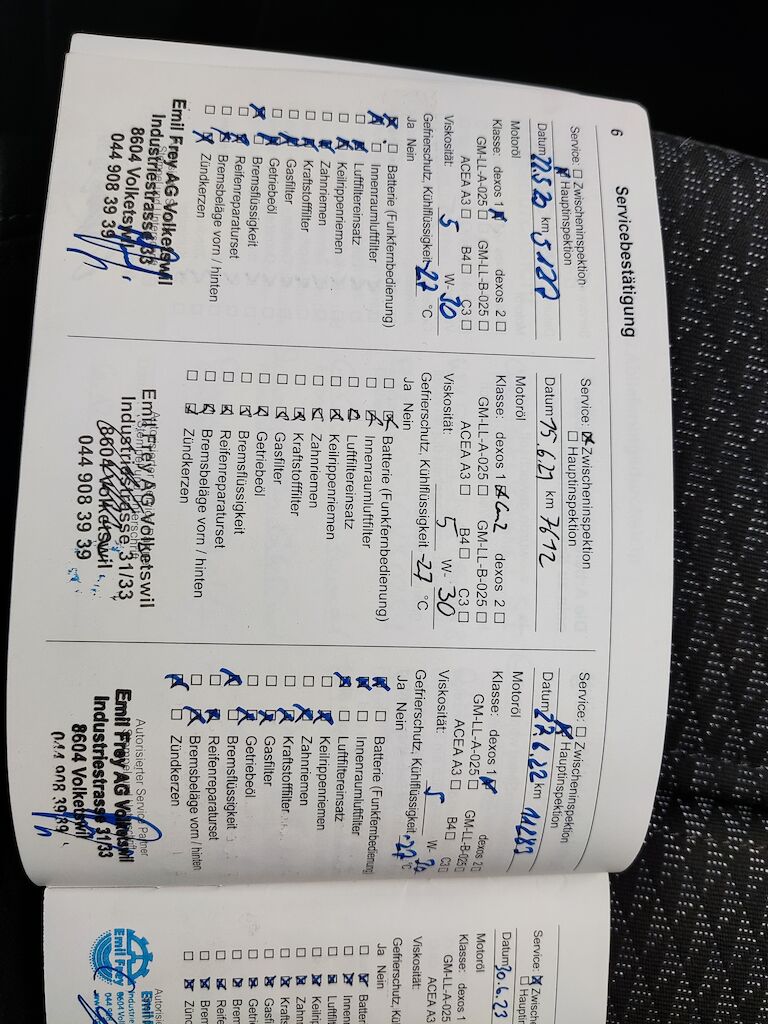 6
Servicebestätigung
Service: ☐ Zwischeninspektion
☒ Hauptinspektion
Datum 22.5.20 km 5127
Motoröl
Klasse: dexos 1 ☒ dexos 2 ☐
GM-LL-A-025 ☐ GM-LL-B-025 ☐
ACEA A3 ☐ B4 ☐ C3 ☐
Viskosität: 5 W- 30
Gefrierschutz, Kühlflüssigkeit -27 °C
Ja Nein
☒ ☐ Batterie (Funkfernbedienung)
☒ ☐ Innenraumluftfilter
☐ ☒ Luftfiltereinsatz
☐ ☒ Keilrippenriemen
☐ ☒ Zahnriemen
☐ ☒ Kraftstofffilter
☐ ☒ Gasfilter
☐ ☒ Getriebeöl
☒ ☐ Bremsflüssigkeit
☐ ☒ Reifenreparaturset
☐ ☒ Bremsbeläge vorn / hinten
☐ ☒ Zündkerzen
Emil Frey AG Volketswil
Industriestrasse 33
8604 Volketswil
044 908 39 39
Service: ☒ Zwischeninspektion
☐ Hauptinspektion
Datum 15.6.21 km 7612
Motoröl
Klasse: dexos 1 ☒ Gen2 dexos 2 ☐
GM-LL-A-025 ☐ GM-LL-B-025 ☐
ACEA A3 ☐ B4 ☐ C3 ☐
Viskosität: 5 W- 30
Gefrierschutz, Kühlflüssigkeit -27 °C
Ja Nein
☐ ☒ Batterie (Funkfernbedienung)
☐ ☒ Innenraumluftfilter
☐ ☒ Luftfiltereinsatz
☐ ☒ Keilrippenriemen
☐ ☒ Zahnriemen
☐ ☒ Kraftstofffilter
☐ ☒ Gasfilter
☐ ☒ Getriebeöl
☐ ☒ Bremsflüssigkeit
☐ ☒ Reifenreparaturset
☐ ☒ Bremsbeläge vorn / hinten
☐ ☒ Zündkerzen
Emil Frey AG Volketswil
Industriestrasse 31/33
8604 Volketswil
044 908 39 39
Service: ☐ Zwischeninspektion
☒ Hauptinspektion
Datum 27.6.22 km 11287
Motoröl
Klasse: dexos 1 ☒ dexos 2 ☐
GM-LL-A-025 ☐ GM-LL-B-025 ☐
ACEA A3 ☐ B4 ☐ C3 ☐
Viskosität: 5 W- 30
Gefrierschutz, Kühlflüssigkeit -27 °C
Ja Nein
☒ ☐ Batterie (Funkfernbedienung)
☒ ☐ Innenraumluftfilter
☒ ☐ Luftfiltereinsatz
☐ ☒ Keilrippenriemen
☐ ☒ Zahnriemen
☐ ☒ Kraftstofffilter
☐ ☒ Gasfilter
☐ ☒ Getriebeöl
☒ ☐ Bremsflüssigkeit
☐ ☒ Reifenreparaturset
☐ ☒ Bremsbeläge vorn / hinten
☒ ☐ Zündkerzen
Autorisierter Service Partner
Emil Frey AG Volketswil
Industriestrasse 31/33
8604 Volketswil
044 908 39 39
Service: ☒ Zwische
☐ Hauptins
Datum 30.6.23
Motoröl
Klasse: dexos 1
GM-LL-A
ACEA A3
Viskosität:
Gefrierschutz, Kühl
Ja Nein
☐ ☒ Batter
☐ ☒ Innen
☐ ☒ Luftfil
☐ ☒ Keilrip
☐ ☒ Zahn
☐ ☒ Kraft
☐ ☒ Gasfi
☐ ☒ Getri
☐ ☒ Brem
☐ ☒ Reife
☐ ☒ Brem
☐ ☒ Zünd
Autoris
Emil Frey
Industrie
8604 Vol
044 90